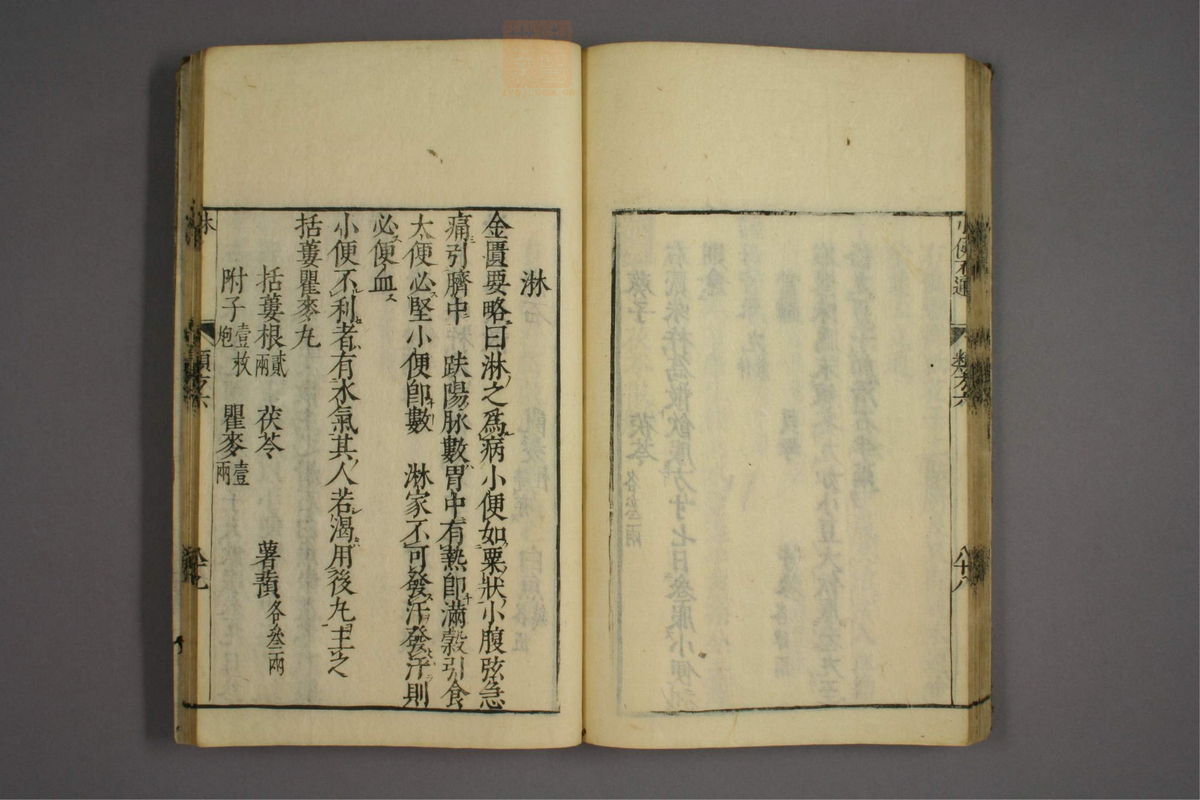 小便不通
類方六
八十八
淋
金匱要略曰淋之為病小便如粟狀小腹弦急
痛引臍中 趺陽脉數胃中有熱即滿穀引食
大便必堅小便即數 淋家不可發汗發汗則
必便血
小便不利者有水氣其人若渴用後丸主之
括蔞瞿麥丸
括蔞根貳兩 茯苓 薯蕷各叄兩
附子壹枚炮 瞿麥壹兩
類方六
八十九